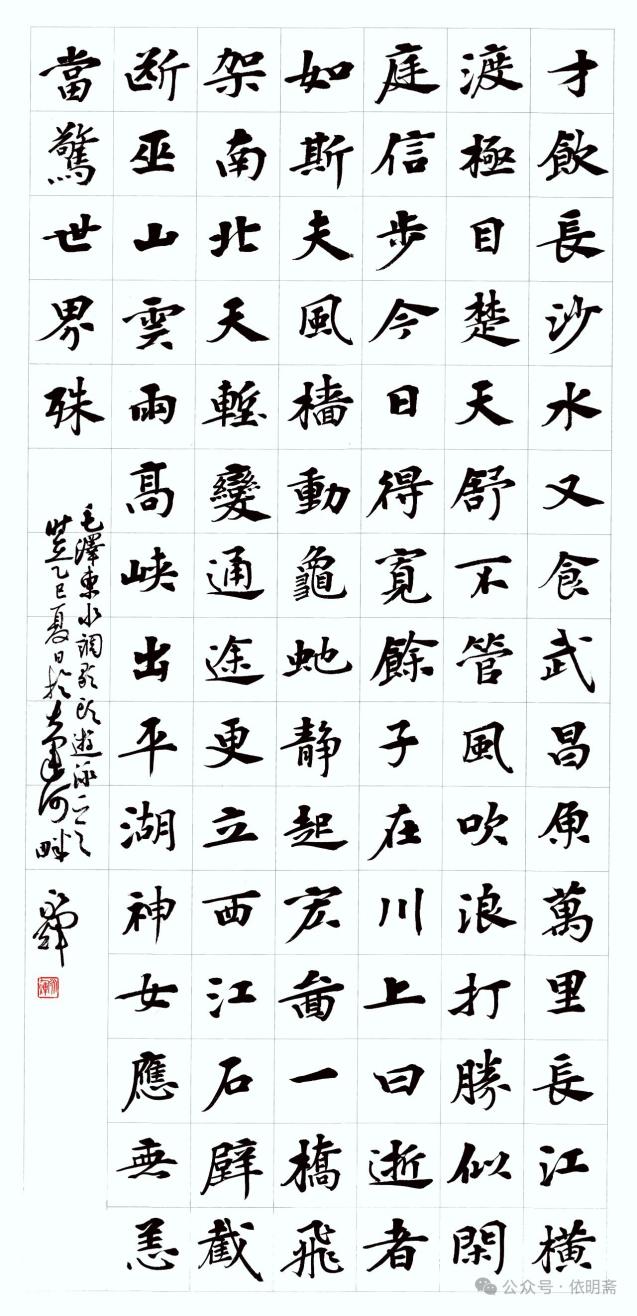 才飲長沙水又食武昌魚萬里長江橫
渡極目楚天舒不管風吹浪打勝似閑
庭信步今日得寬餘子在川上曰逝者
如斯夫風檣動龜虵靜起宏啚一橋飛
架南北天塹變通途更立西江石壁截
断巫山雲雨高峽出平湖神女應無恙
當驚世界殊
毛澤東水調歌頭遊泳
乙巳夏日於大運河畔
公众号·依明斋